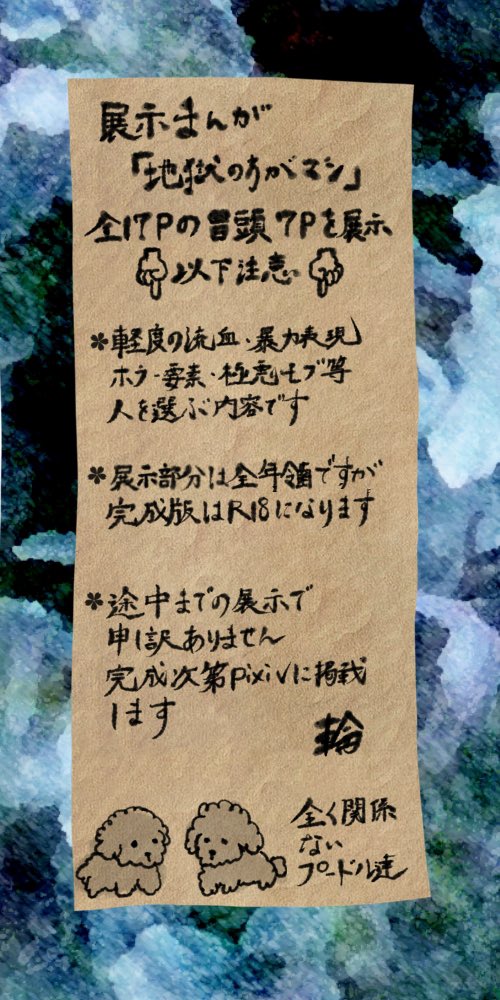 展示まんが
「地獄のすがマシ」
全17Pの冒頭7Pを展示
以下注意
*軽度の流血・暴力表現
ホラー要素・極悪モブ等
人を選ぶ内容です
*展示部分は全年齢ですが
完成版はR18になります
*途中までの展示で
申し訳ありません
完成次第pixivに掲載
します
輪
全く関係
ない
プードル達